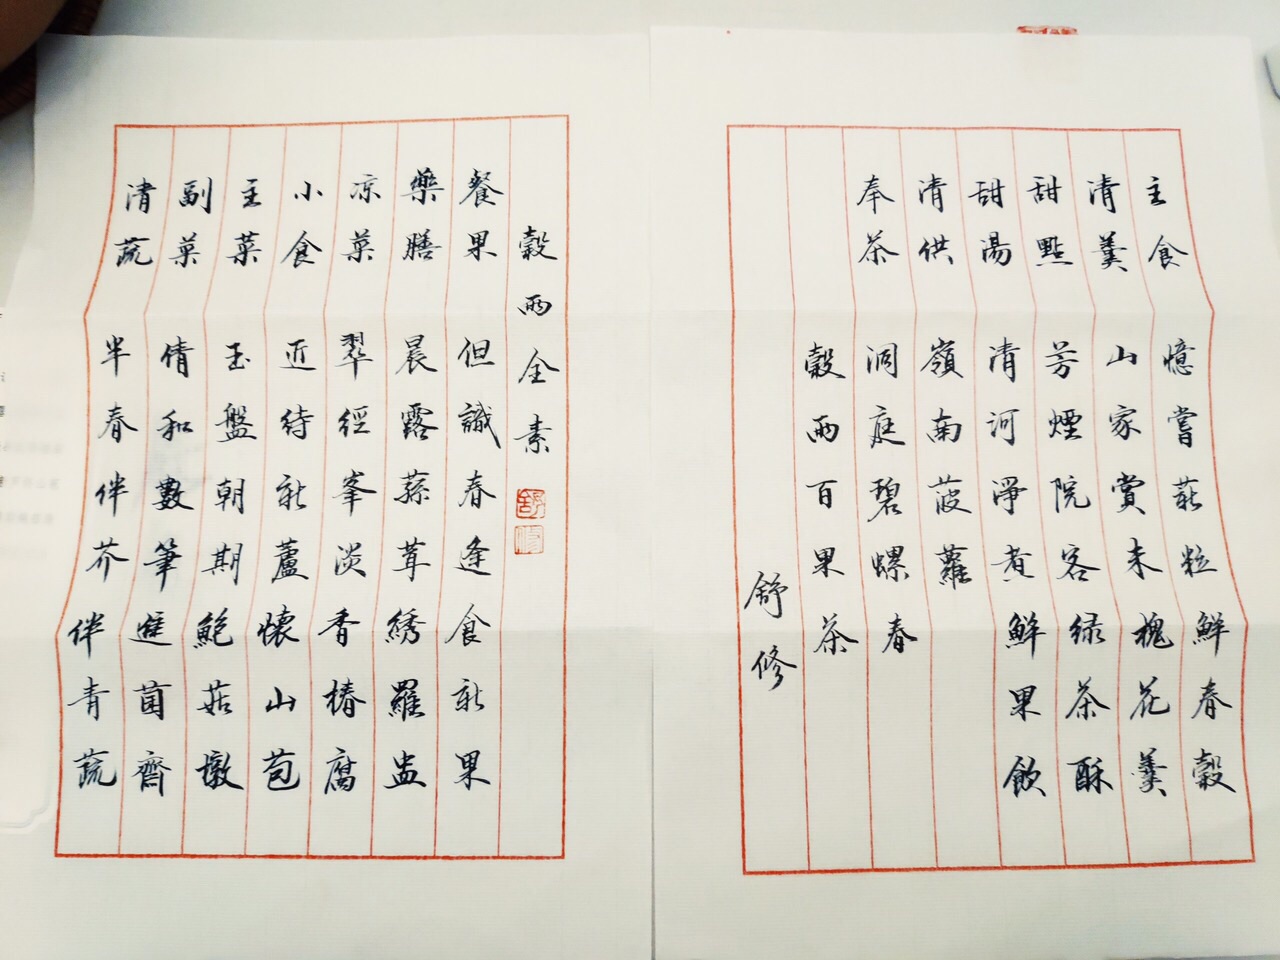 穀雨全素
舒修
餐果 但識春逢食新果
藥膳 晨露蓀茸綉羅盅
凉菜 翠經峯淡香椿腐
小食 近待新蘆懷山苞
主菜 玉盤朝期鮑菇墩
副菜 倩和數筆進菌齊
清蔬 半春伴芥伴青蔬
主食 憶嘗粒鮮春穀
清羹 山家賞未槐花羹
甜點 芳煙院客绿茶酥
甜湯 清河淨煮鮮果飲
清供 嶺南菠蘿
奉茶 洞庭碧螺春
穀雨百果茶
舒修